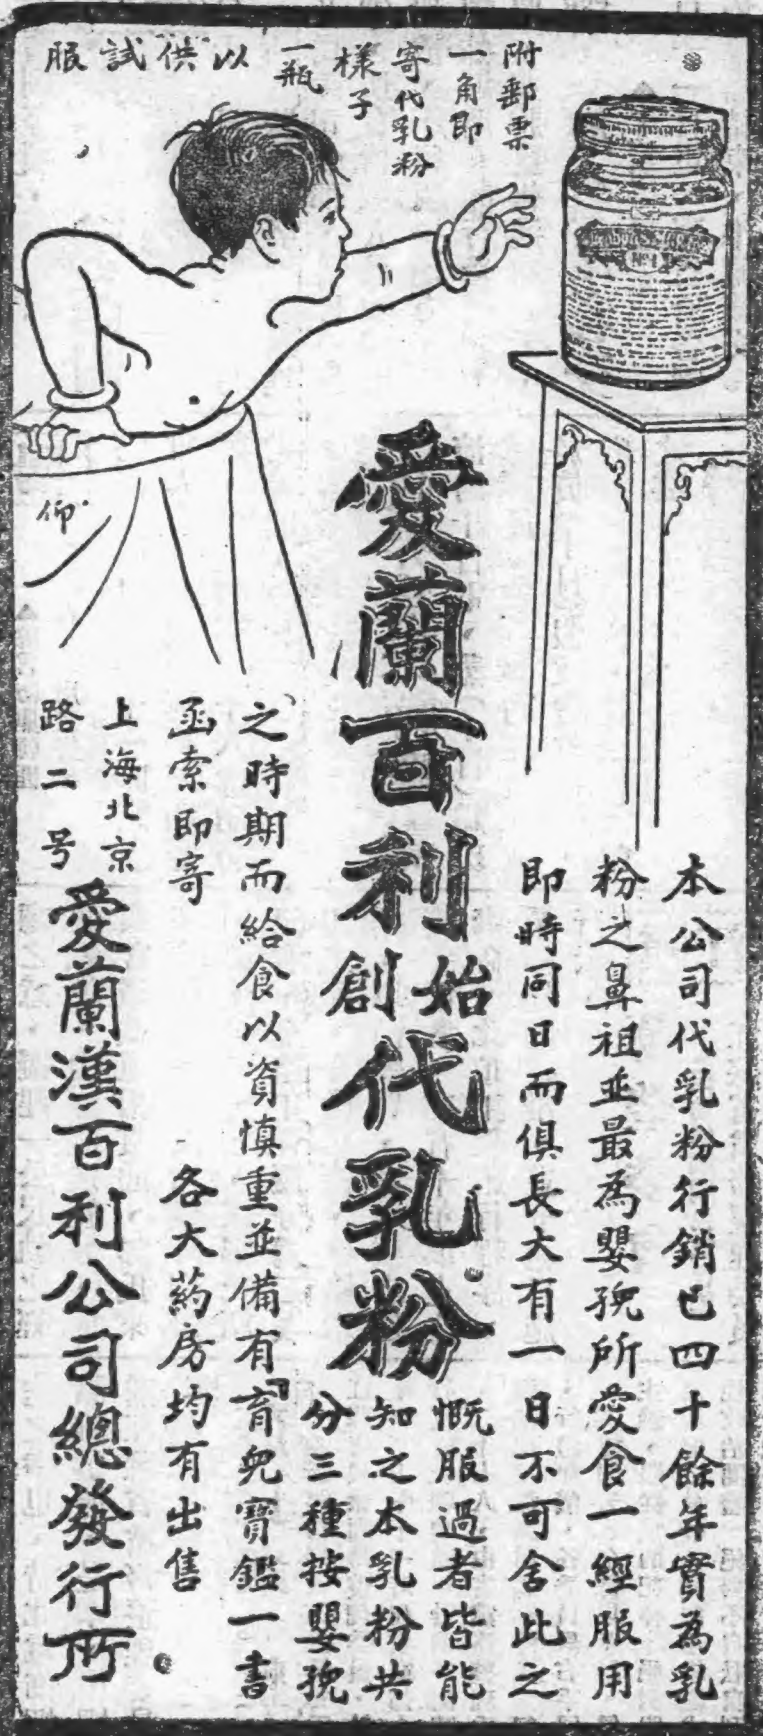 附郵票
一角即
寄代乳粉
樣子
一瓶
以供試服
愛蘭百利
始創
代乳粉
本公司代乳粉行銷已四十餘年實為乳
粉之鼻祖並最為嬰孩所愛食一經服用
即時同日而俱長大有一日不可舍此之
慨服過者皆能
知之本乳粉共
分三種按嬰孩
之時期而給食以資慎重並備有「育兒寶鑑一書
函索即寄
各大药房均有出售
上海北京
路二号
愛蘭漢百利公司總發行所
仰